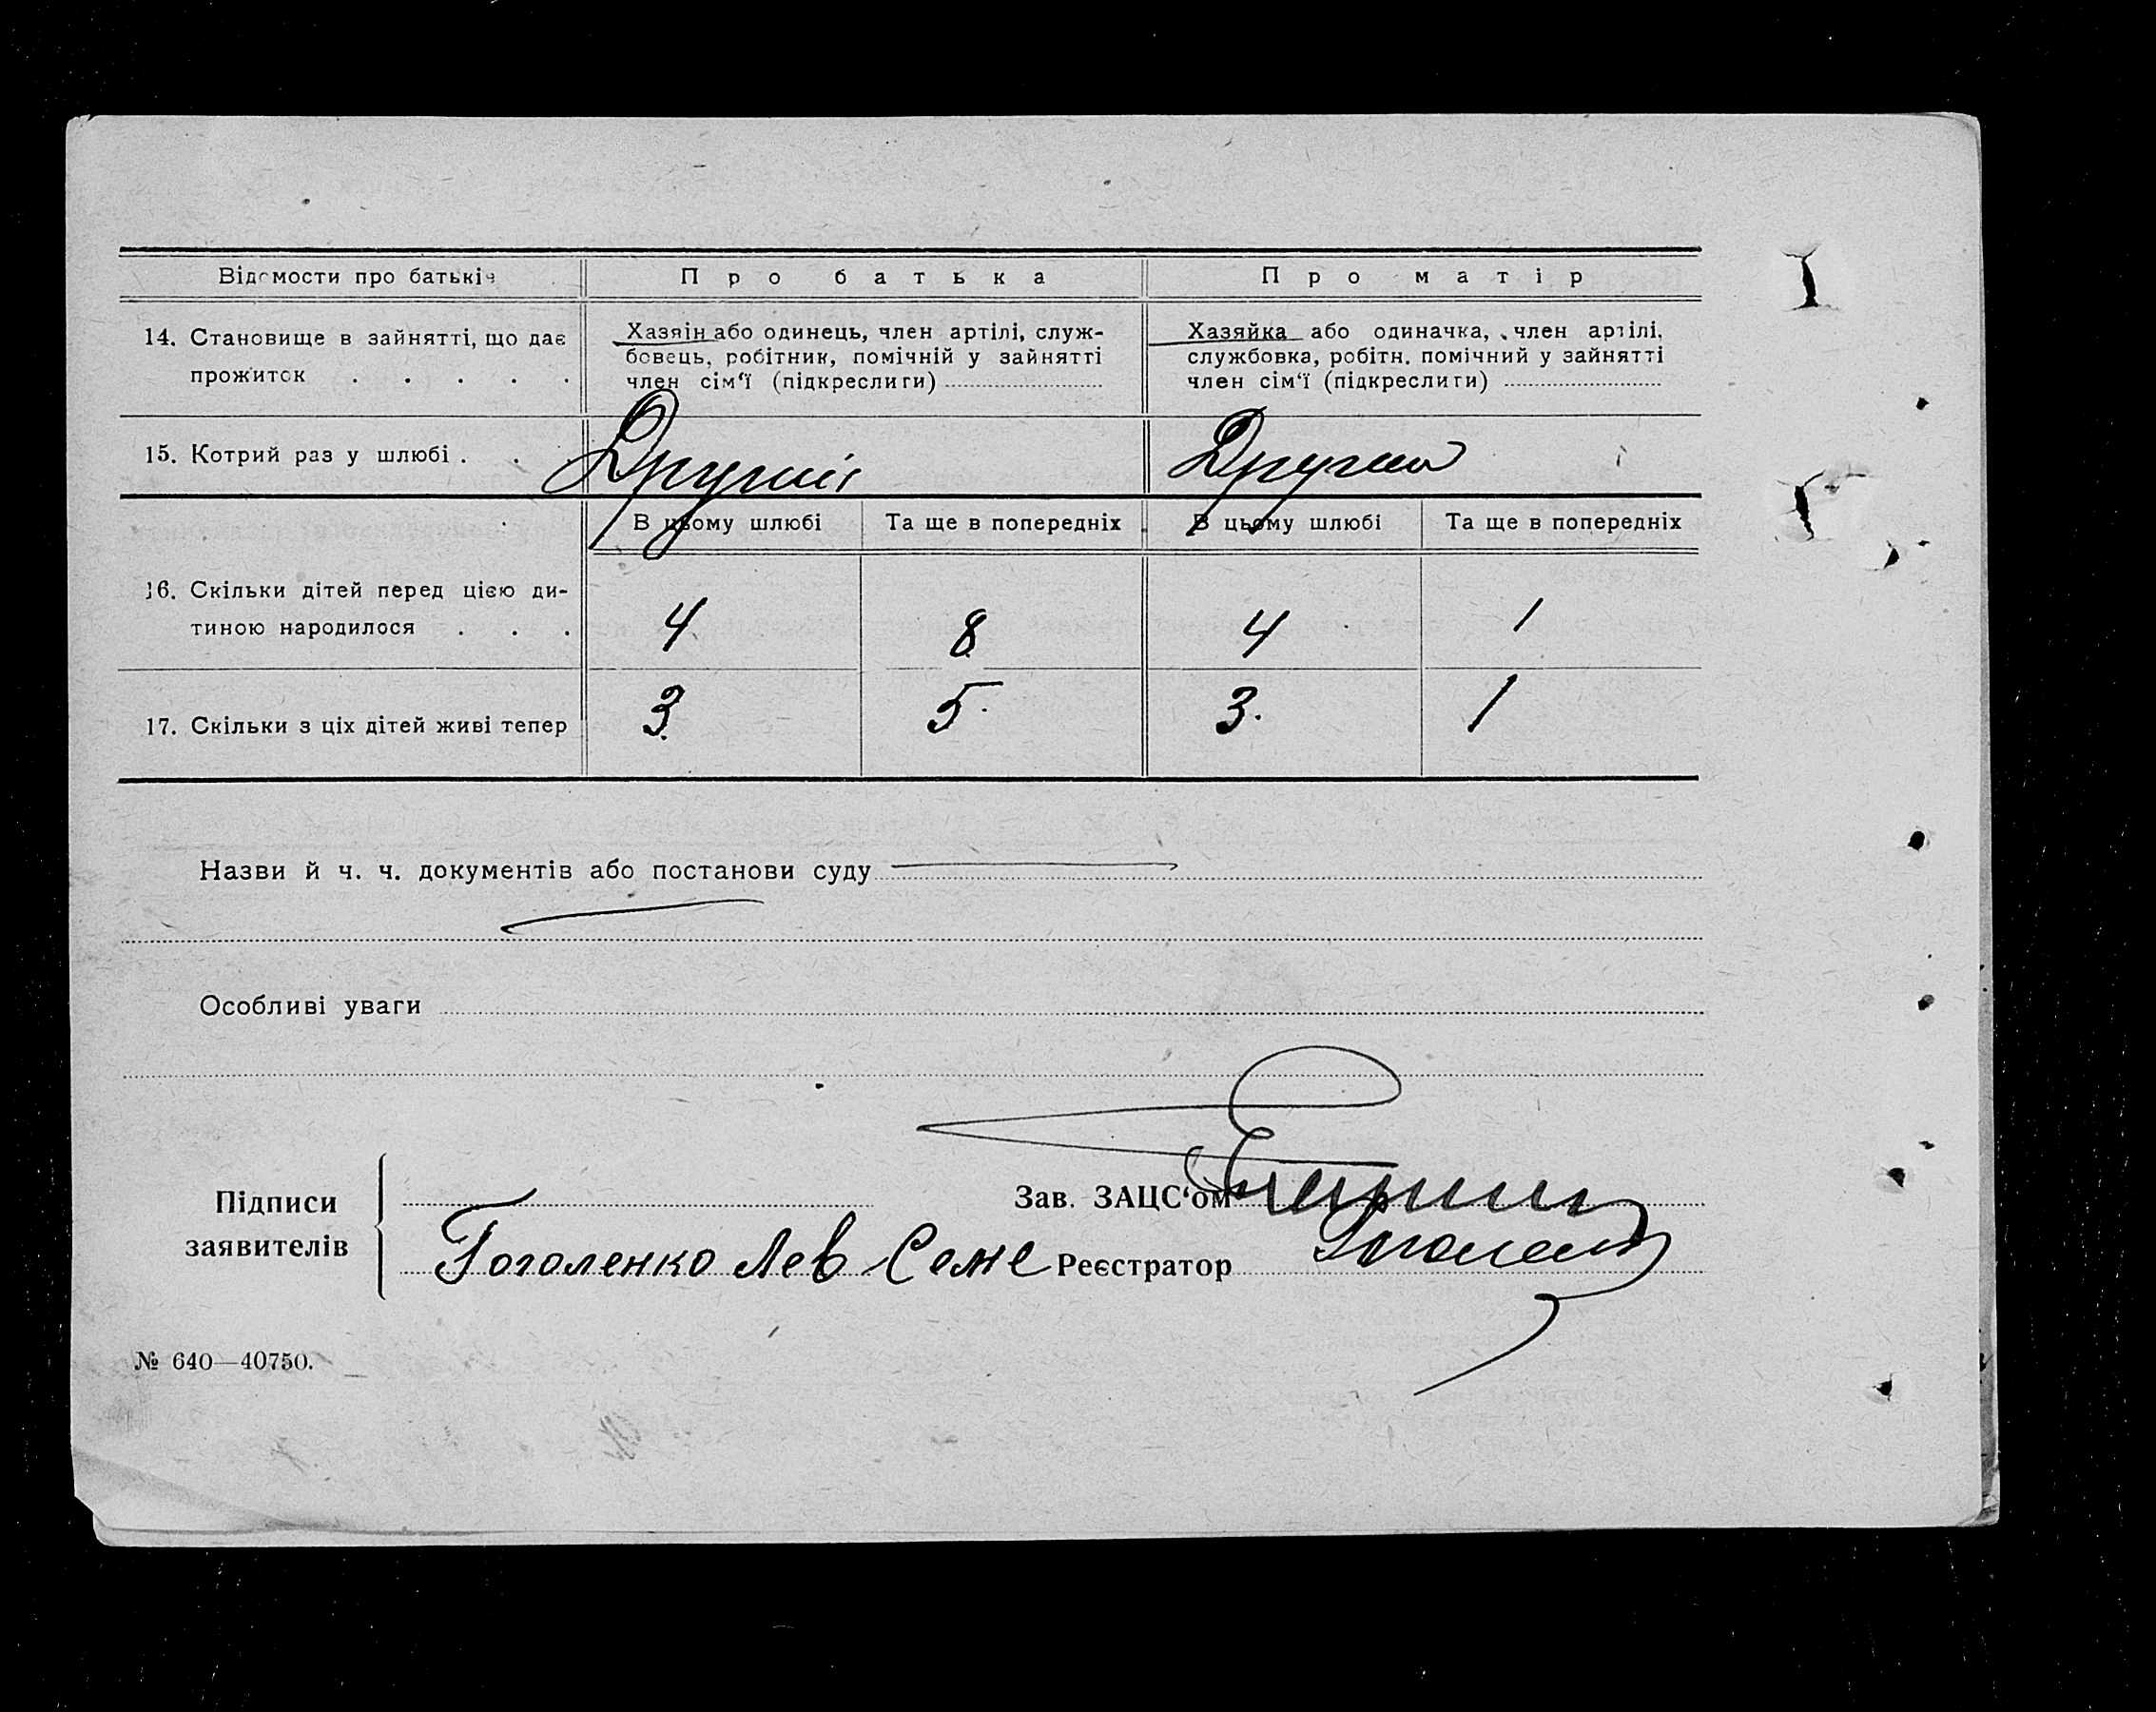 Відомости про батьків
Про батька
Про матір
14. Становище в зайнятті, що дає
прожиток . . . . .
Хазяін або одинець, член артілі, служ-
бовець, робітник, помічній у зайнятті
член сім‘ї (підкреслити)
Хазяйка або одиначка, член артілі,
службовка, робітн. помічний у зайнятті
член сім‘ї (підкреслити)
15. Котрий раз у шлюбі . . .
В цьому шлюбі
Та ще в попередніх
В цьому шлюбі
Та ще в попередніх
16. Скільки дітей перед цією ди-
тиною народилося . . .
4
8
4
1
17. Скільки з ціх дітей живі тепер
3
5
3.
1
Назви й ч. ч. документів або постанови суду
Особливі уваги
Підписи
заявителів
Зав. ЗАЦС‘ом
Гоголенко Лев Семе
Реєстратор
№ 640—40750.